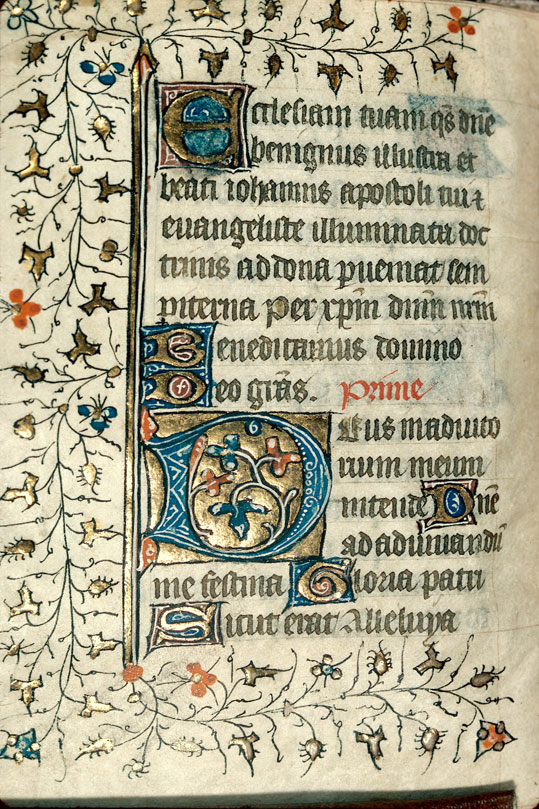 Ecclesiam tuam qs̄ dn̄e
benignus illustra et
beati iohannis apostoli tui ⁊
euangeliste illuminata doc
trinis ad dona ꝑueniat sem
piterna Per xp̄m dn̄m nr̄m
Benedicamus domino
Deo grās. Prime
Deus in adiuto
rium meum
intende Dn̄e
ad adiuuandū
me festina Gloria patri
Sicut erat Alleluya